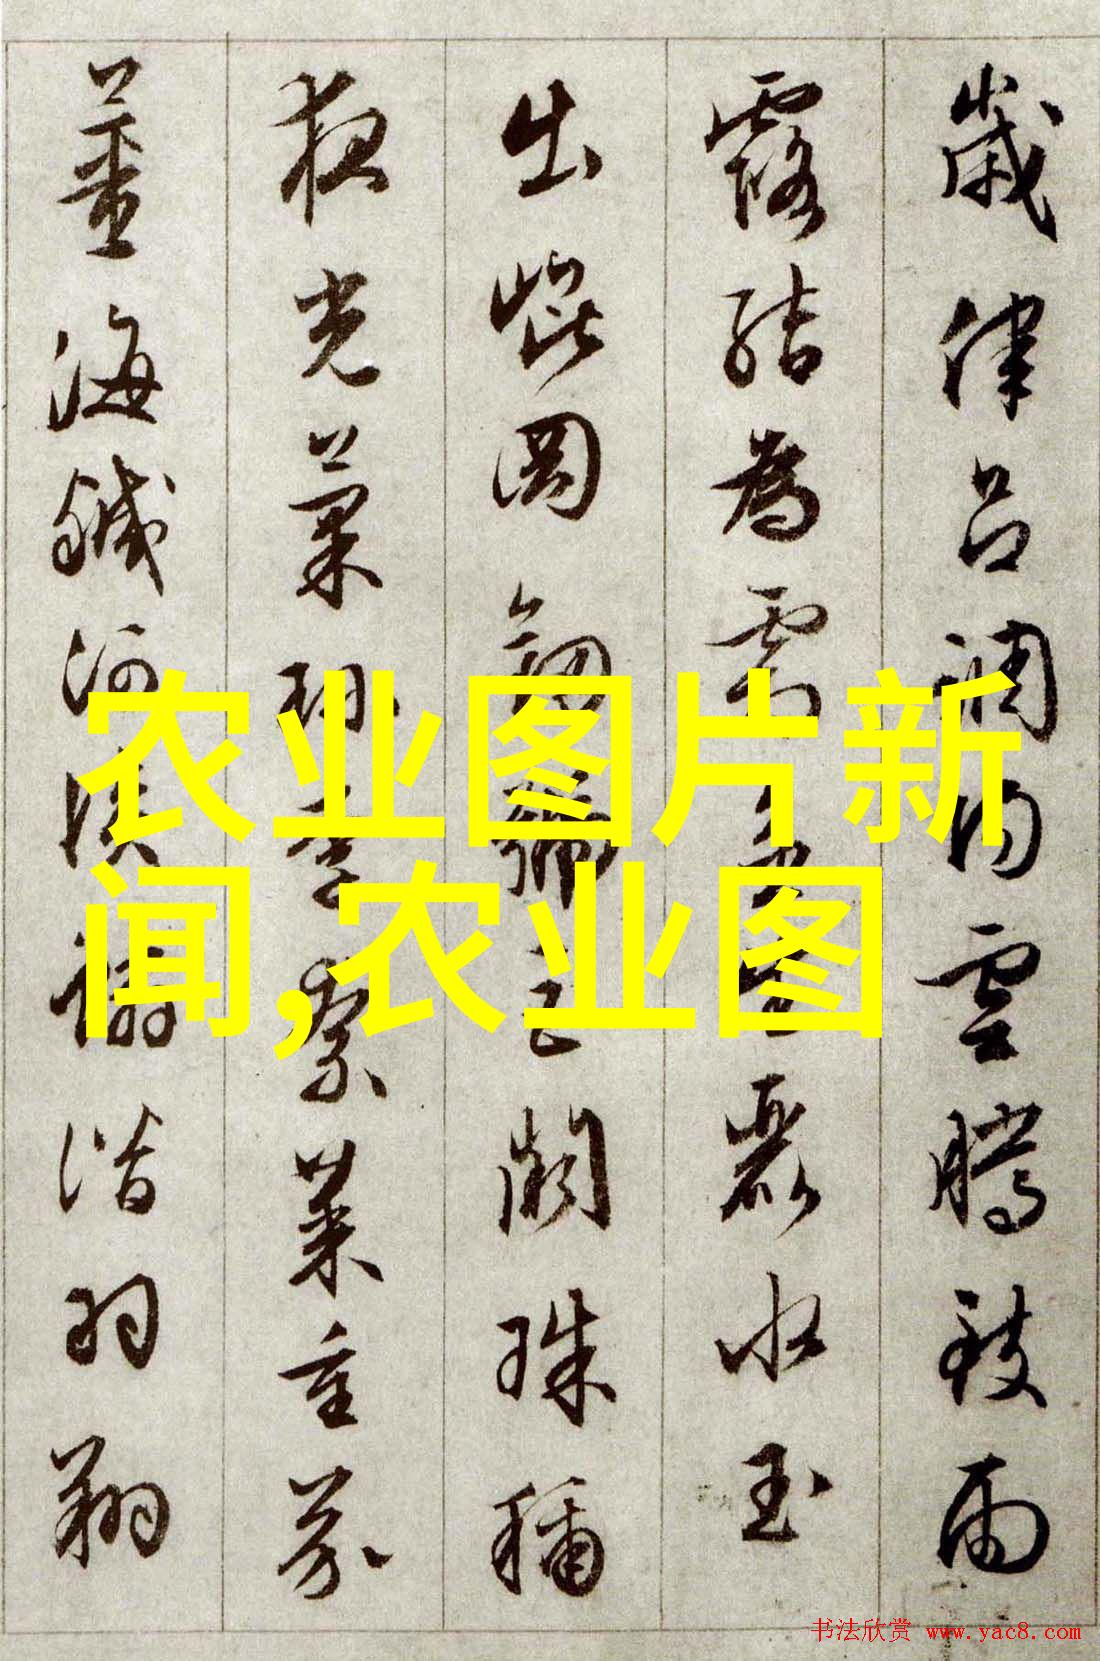 歲律呂調陽雲騰致雨
露結為霜金生麗水玉
出崐岡劍號巨闕珠稱
夜光菓珍李柰菜重芥
薑海鹹河淡鱗潛羽翔
农业图片新
闻,农业图
书法欣赏 www.yac8.com